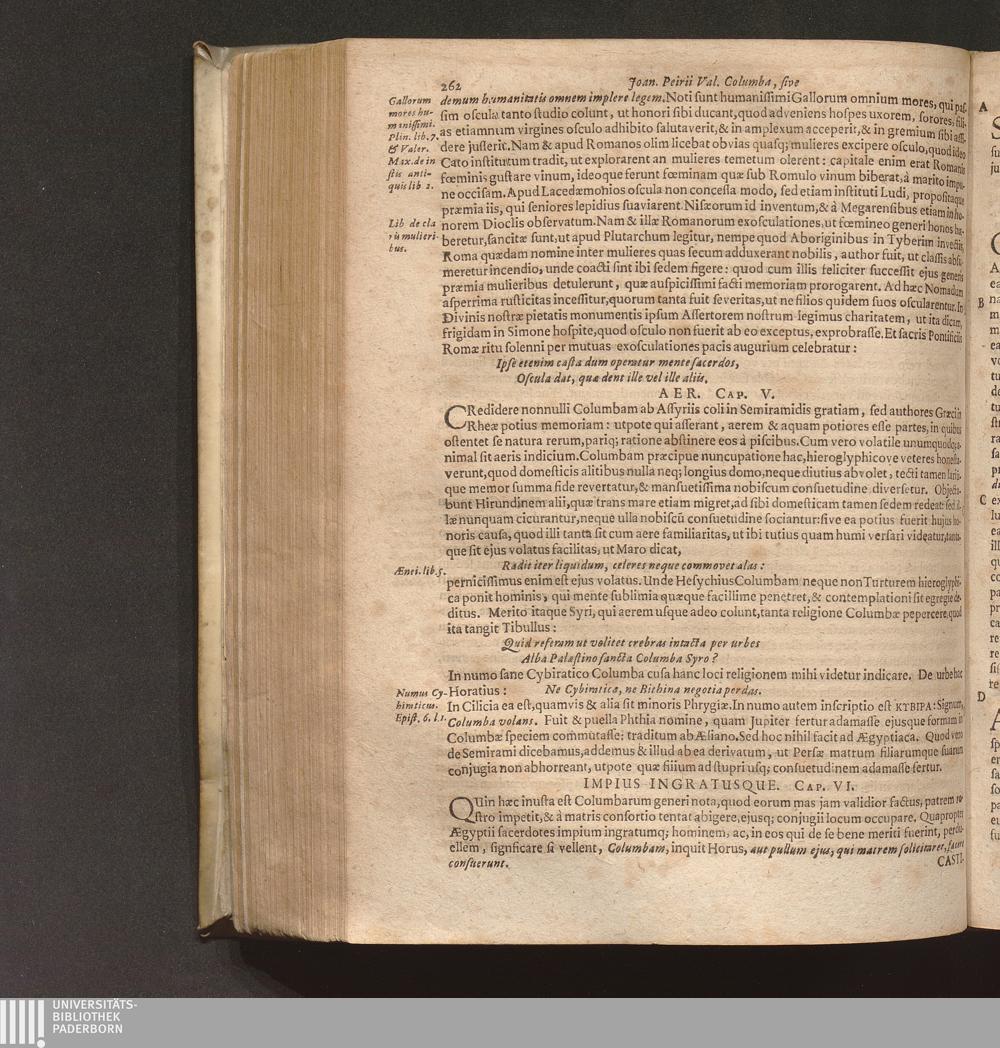 262 Joan. Peirii Val. Columba, sive
Gallorum
mores hu-
manissimi.
Plin. lib. 7.
& Valer.
Max. de in
stis anti-
quis lib 2.
demum humanitatis omnem implere legem. Noti sunt humanissimi Gallorum omnium mores, qui pas-
sim oscula tanto studio colunt, ut honori sibi ducant, quod adveniens hospes uxorem, sorores, fili-
as etiamnum virgines osculo adhibito salutaverit, & in amplexum acceperit, & in gremium sibi assi-
dere jusserit. Nam & apud Romanos olim licebat obvias quasq; mulieres excipere osculo, quod ideo
Cato institutum tradit, ut explorarent an mulieres temetum olerent: capitale enim erat Romanis
fœminis gustare vinum, ideoque ferunt fœminam quæ sub Romulo vinum biberat, à marito impu-
ne occisam. Apud Lacedæmohios oscula non concessa modo, sed etiam instituti Ludi, propositaque
præmia iis, qui seniores lepidius suaviarent. Nisæorum id inventum, & à Megarensibus etiam in ho-
Lib de cla
ris mulieri-
bus.
norem Dioclis observatum. Nam & illæ Romanorum exosculationes, ut fœmineo generi honos ha-
beretur, sancitæ sunt, ut apud Plutarchum legitur, nempe quod Aboriginibus in Tyberim invectis,
Roma quædam nomine inter mulieres quas secum adduxerant nobilis, author fuit, ut classis absu-
meretur incendio, unde coacti sint ibi sedem figere: quod cum illis feliciter successit ejus generis
præmia mulieribus detulerunt, quæ auspicissimi facti memoriam prorogarent. Ad hæc Nomadum
asperrima rusticitas incessitur, quorum tanta fuit severitas, ut ne filios quidem suos oscularentur. In
Divinis nostræ pietatis monumentis ipsum Assertorem nostrum legimus charitatem, ut ita dicam,
frigidam in Simone hospite, quod osculo non fuerit ab eo exceptus, exprobrasse. Et sacris Pontificiis
Romæ ritu solenni per mutuas exosculationes pacis augurium celebratur:
Ipse etenim casta dum operatur mente sacerdos,
Oscula dat, quæ dent ille vel ille aliis.
AER. CAP. V.
CRedidere nonnulli Columbam ab Assyriis coli in Semiramidis gratiam, sed authores Græci in
Rheæ potius memoriam: utpote qui asserant, aerem & aquam potiores esse partes, in quibus
ostentet se natura rerum, pariq; ratione abstinere eos à piscibus. Cum vero volatile unumquodq; a-
nimal sit aeris indicium. Columbam præcipue nuncupatione hac, hieroglyphicove veteres honesta-
verunt, quod domesticis alitibus nulla neq; longius domo, neque diutius abvolet, tecti tamen laris-
que memor summa fide revertatur, & mansuetissima nobiscum consuetudine diversetur. Objecta-
bunt Hirundinem alii, quæ trans mare etiam migret, ad sibi domesticam tamen sedem redeat: sed il-
læ nunquam cicurantur, neque ulla nobiscũ consuetudine sociantur: sive ea potius fuerit hujus ho-
noris causa, quod illi tanta sit cum aere familiaritas, ut ibi tutius quam humi versari videatur, tanta-
que sit ejus volatus facilitas, ut Maro dicat,
Ænei. lib. 5.
Radit iter liquidum, celeres neque commovet alas:
pernicissimus enim est ejus volatus. Unde Hesychius Columbam neque non Turturem hieroglyphi-
ca ponit hominis, qui mente sublimia quæque facillime penetret, & contemplationi sit egregie de-
ditus. Merito itaque Syri, qui aerem usque adeo colunt, tanta religione Columbæ pepercere, quod
ita tangit Tibullus:
Quid referam ut volitet crebras intacta per urbes
Alba Palæstino sancta Columba Syro?
In numo sane Cybiratico Columba cusa hanc loci religionem mihi videtur indicare. De urbe hac
Numus Cy-
biraticus.
Epist. 6. l. 1.
Horatius: Ne Cybiratica, ne Bithina negotia perdas.
In Cilicia ea est, quamvis & alia sit minoris Phrygiæ. In numo autem inscriptio est KTBIPA: Signum,
Columba volans. Fuit & puella Phthia nomine, quam Jupiter fertur adamasse ejusque formam in
Columbæ speciem commutasse: traditum ab Æliano. Sed hoc nihil facit ad Ægyptiaca. Quod vero
de Semirami dicebamus, addemus & illud ab ea derivatum, ut Persæ matrum filiarumque suarum
conjugia non abhorreant, utpote quæ filium ad stupri usq; consuetudinem adamasse fertur.
IMPIUS INGRATUSQUE. CAP. VI.
QUin hæc inusta est Columbarum generi nota, quod eorum mas jam validior factus, patrem ro-
stro impetit, & à matris consortio tentat abigere, ejusq; conjugii locum occupare. Quapropter
Ægyptii sacerdotes impium ingratumq; hominem, ac, in eos qui de se bene meriti fuerint, perdu-
ellem, significare si vellent, Columbam, inquit Horus, aut pullum ejus, qui matrem solicitaret, facere
consuerunt.
CASTI-
A
B
C
D
UNIVERSITÄTS-
BIBLIOTHEK
PADERBORN